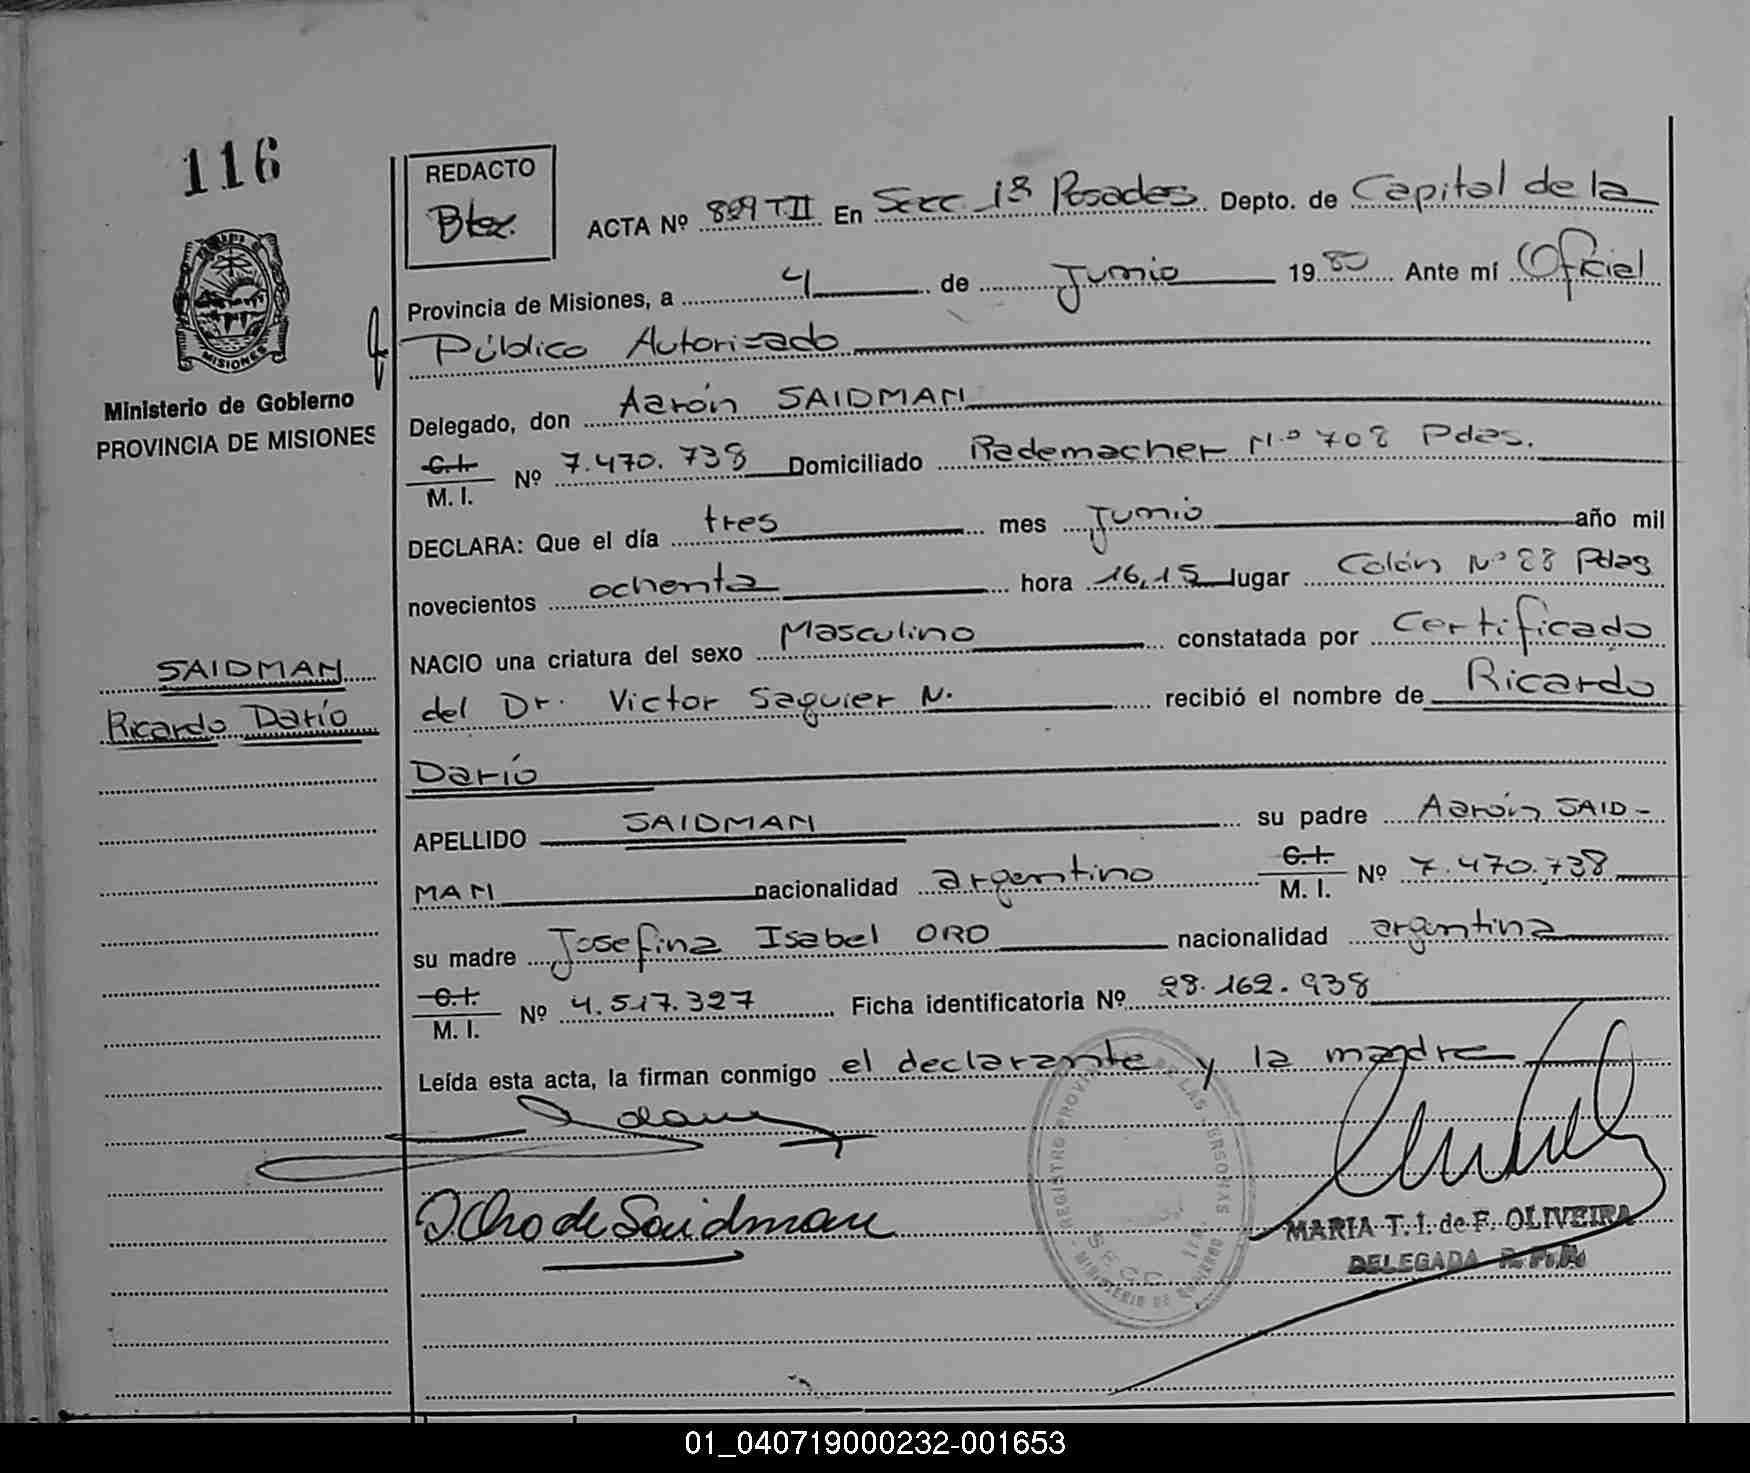 116
REDACTO
ACTA Nº 829 TII En Secc. 1ª Posadas Depto. de Capital de la
Provincia de Misiones, a 4 de Junio 1980 Ante mí Oficial
Público Autorizado
MISIONES
Ministerio de Gobierno
PROVINCIA DE MISIONES
Delegado, don Aarón SAIDMAN
C.I. M. I. Nº 7.470.738 Domiciliado Rademacher N.º 708 Pdas.
DECLARA: Que el día tres mes Junio año mil
novecientos ochenta hora 16,15 lugar Colón Nº 28 Pdas
NACIO una criatura del sexo Masculino constatada por Certificado
SAIDMAN
del Dr. Victor Saguier N. recibió el nombre de Ricardo
Ricardo Darío
Darío
APELLIDO SAIDMAN su padre Aarón SAID-
MAN nacionalidad argentino C.I. M. I. Nº 7.470.738
su madre Josefina Isabel ORO nacionalidad argentina
C.I. M. I. Nº 4.517.327 Ficha identificatoria Nº 28.162.938
Leída esta acta, la firman conmigo el declarante y la madre
J. Oro de Saidman
REGISTRO PROVINCIAL DE LAS PERSONAS
SECC. 1ra.
MINISTERIO DE GOBIERNO
MARIA T. I. de F. OLIVEIRA
DELEGADA R. P. P.
01_040719000232-001653